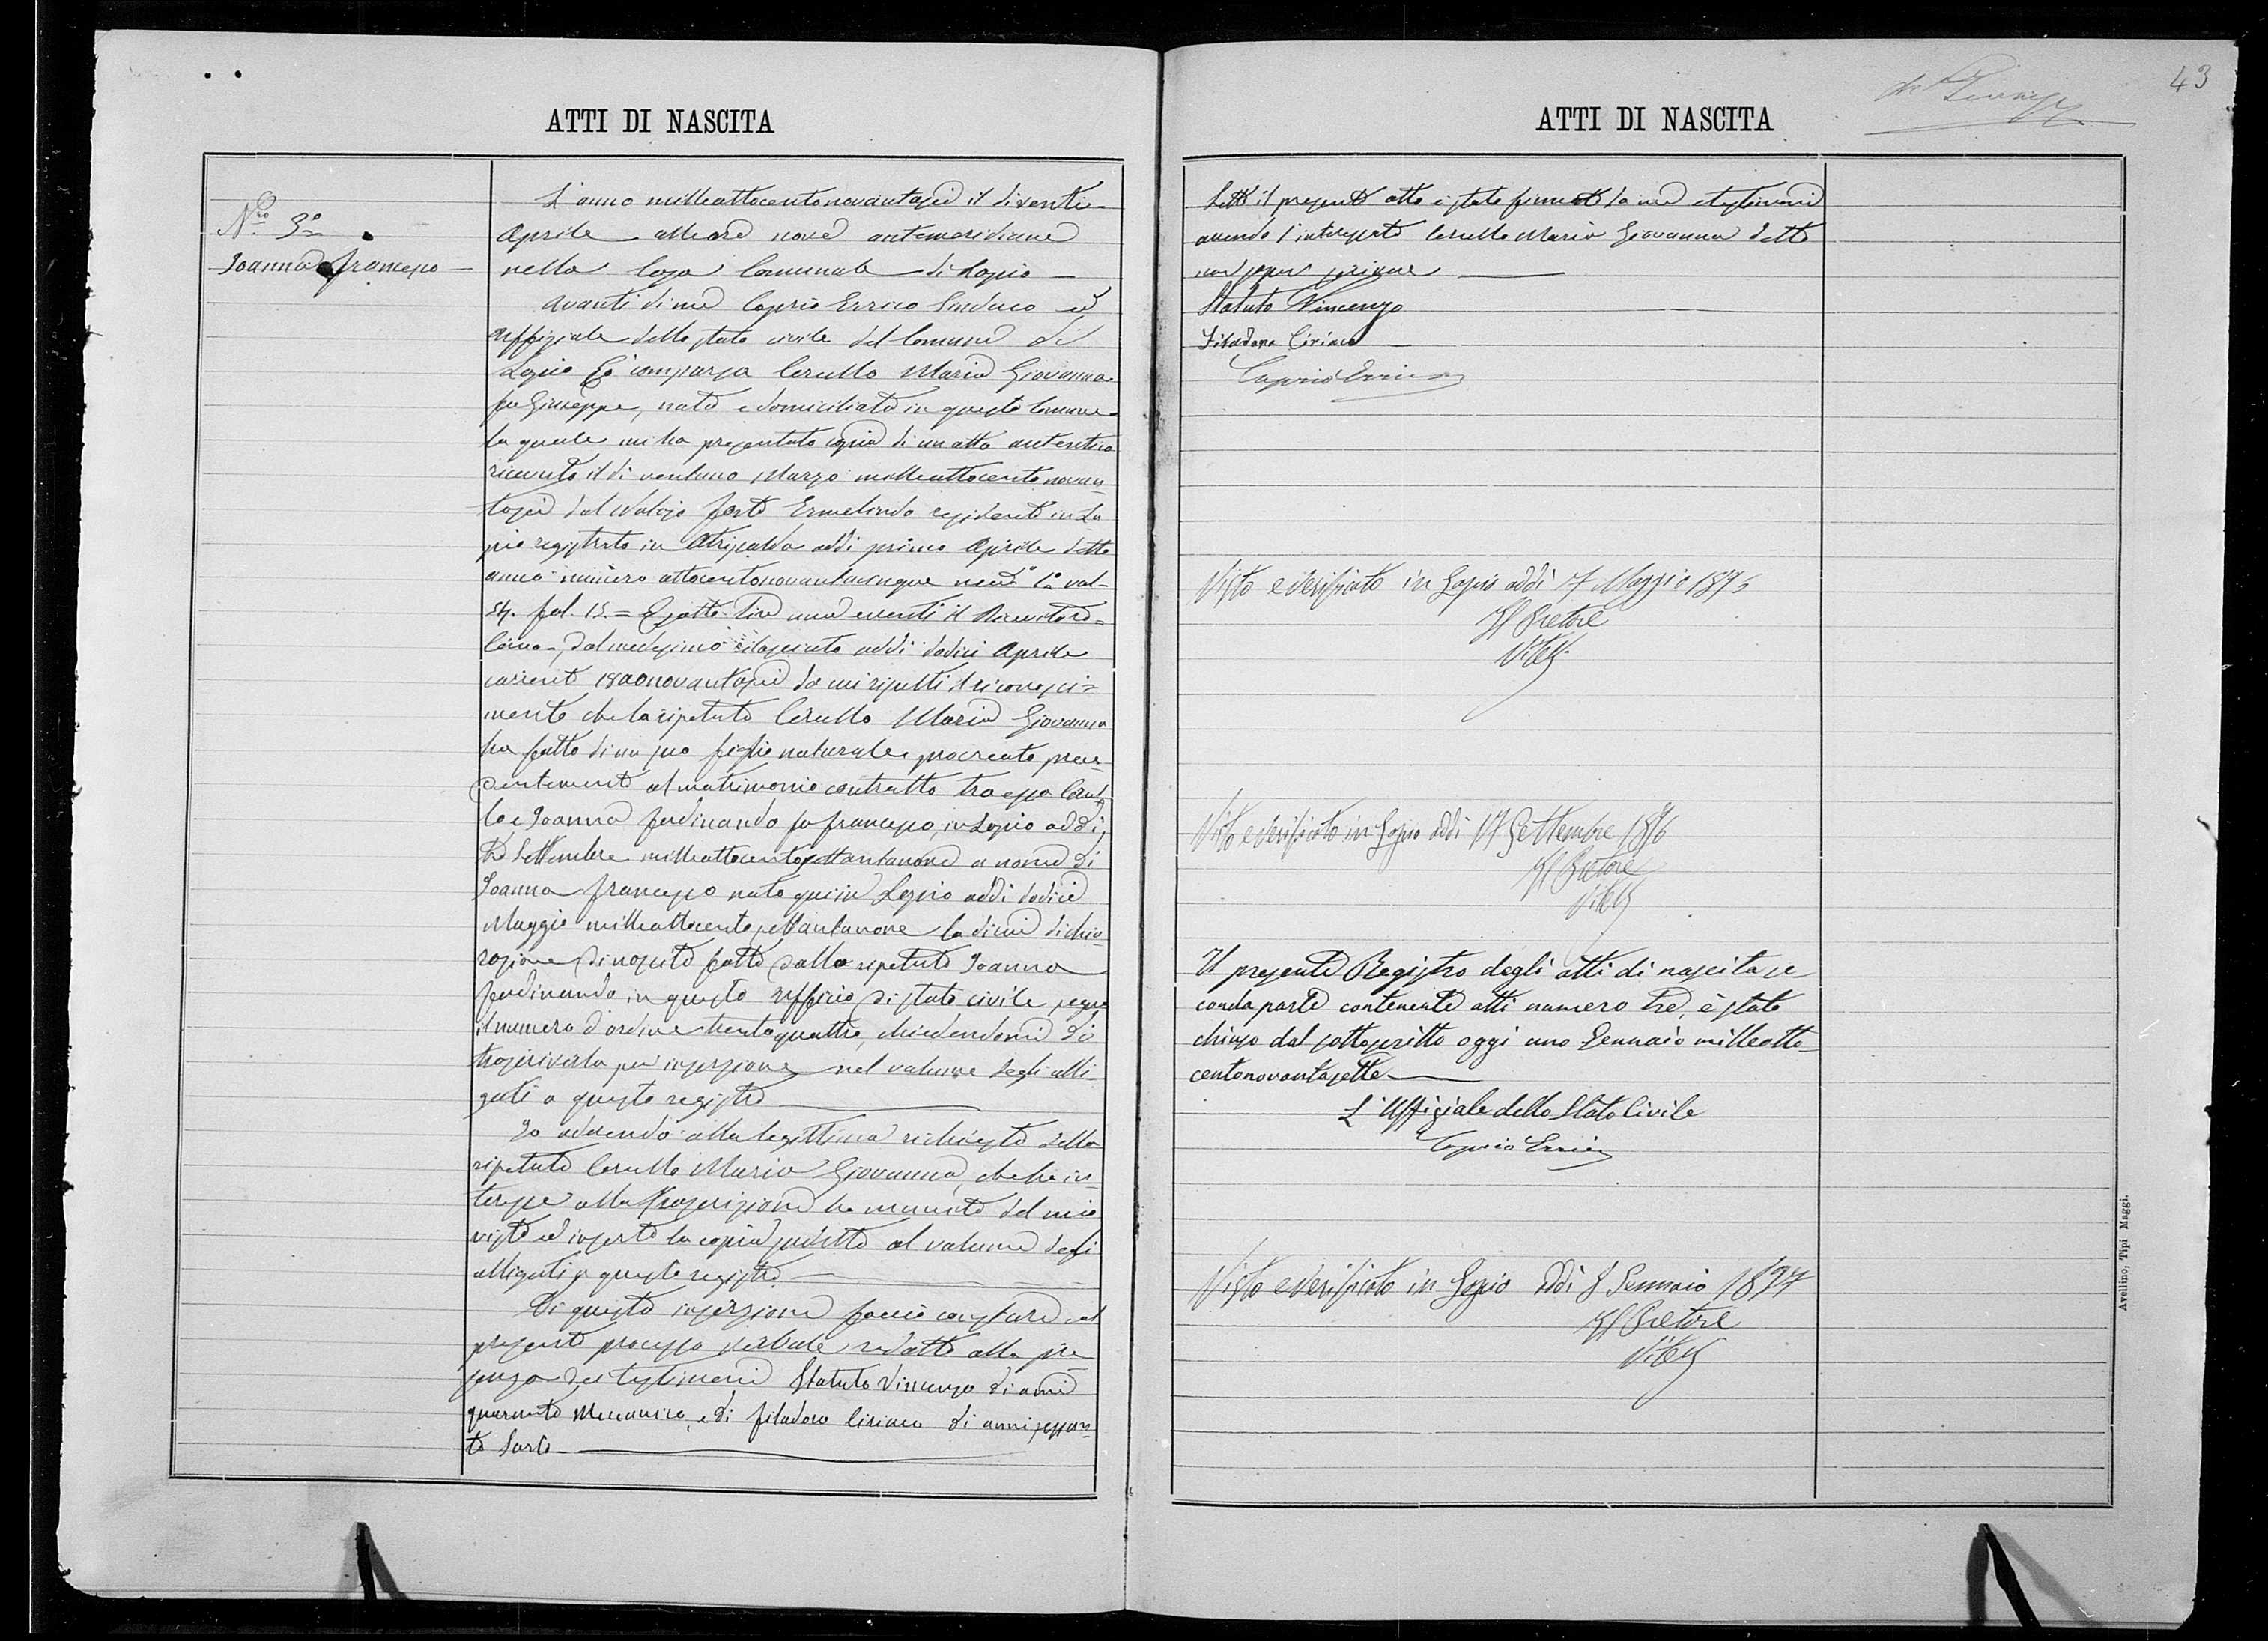 ATTI DI NASCITA
Nro 3o
Ioanna Francesco
L'anno milleottocentonovantasei il dì venti
Aprile alle ore nove antimeridiane
nella Casa Comunale di Lapio
Avanti di me Caprio Errico Sindaco ed
Uffiziale dello stato civile del Comune di
Lapio È comparsa Cerullo Maria Giovanna
fu Giuseppe, nata e domiciliata in questo Comune
la quale mi ha presentato copia di un atto autentico
ricevuto il dì ventuno Marzo milleottocentonovan-
tasei dal Notajo Forte Ermelindo residente in La
pio registrato in Atripalda addì primo Aprile detto
anno numero ottocentonovantacinque 1o vol-
fol. 15 = Esatte lire una e venti il Ricevitore
dal medesimo rilasciato addì dodici Aprile
corrente 1800novantasei da cui risulta il riconosci-
mento che la ripetuta Cerullo Maria Giovanna
ha fatto di un suo figlio naturale procreato prece-
dentemente al matrimonio contratto tra essa Cerul-
lo e Ioanna Ferdinando fu Francesco, in Lapio addì
tre Settembre milleottocentosettantanove a nome di
Ioanna Francesco nato qui in Lapio addì dodici
Maggio milleottocentosettantanove la di cui dichia-
razione di nascita fatta dalla ripetuta Ioanna
Ferdinando in questo Ufficio di stato civile segna
il numero d'ordine trentaquattro, chiedendomi di
trascriverla per inserzione nel volume degli alli-
gati a questo registro
Io aderendo alla legittima richiesta della
ripetuta Cerullo Maria Giovanna, che ha in-
teresse alla trascrizione ho munito del mio
visto ed inserto la copia sudetta al volume degli
alligati a questo registro
Di questa inserzione faccio constare col
presente processo verbale redatto alla pre
senza dei testimoni Statuto Vincenzo di anni
quaranta Meccanico, e di Filadoro Ciriaco di anni sessan-
ta Sarto
ATTI DI NASCITA
43
Letto il presente atto è stato firmato da me e testimoni
avendo l'interessata Cerullo Maria Giovanna detto
non saper scrivere
Statuto Vincenzo
Filadoro Ciriaco
Caprio Errico
Visto e verificato in Lapio addì 17 Maggio 1896
Il Pretore
Visto e verificato in Lapio addì 17 Settembre 1896
Il Pretore
Il presente Registro degli atti di nascita se
conda parte contenente atti numero tre, è stato
chiuso dal sottoscritto oggi uno Gennaio milleotto-
centonovantasette
L'Uffiziale dello Stato Civile
Caprio Errico
Visto e verificato in Lapio addì 8 Gennaio 1897
Il Pretore
Avellino, Tipi Maggi.